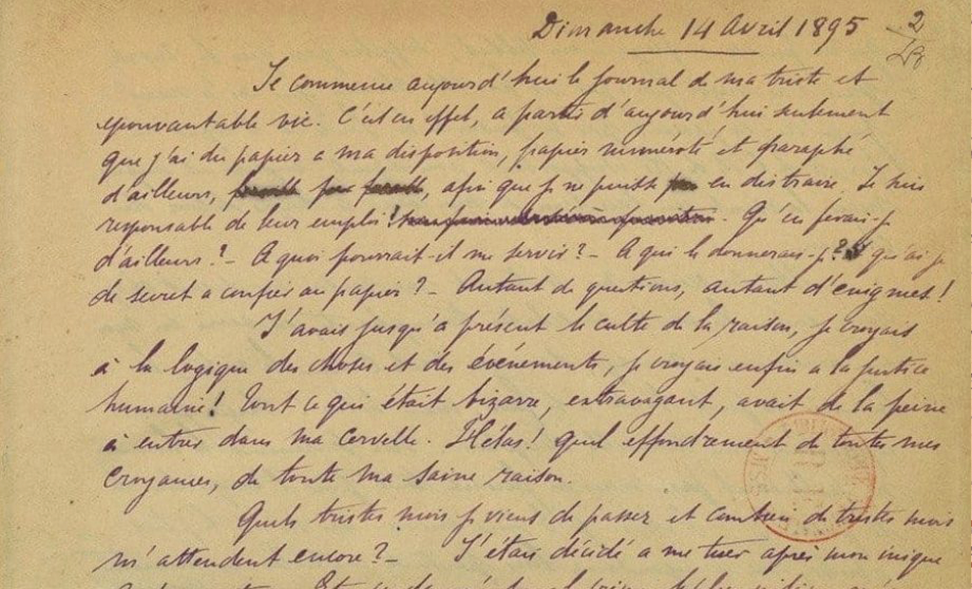 Dimanche 14 Avril 1895 2
Je commence aujourd'hui le journal de ma triste et
epouvantable vie. C'est en effet, a partir d'aujourd'hui seulement
que j'ai du papier a ma disposition, papier numéroté et paraphé
d'ailleurs, afin que je ne puisse en distraire. Je suis
responsable de leur emploi! Qu'en ferais-je
d'ailleurs? - A quoi pourrait-il me servir? - A qui le donnerais-je? qu'ai-je
de secret a confier au papier? - Autant de questions, autant d'enigmes!
J'avais jusqu'a présent le culte de la raison, je croyais
à la logique des choses et des événements, je croyais enfin a la justice
humaine! Tout ce qui était bizarre, extravagant, avait de la peine
à entrer dans ma cervelle. Hélas! quel effondrement de toutes mes
croyances, de toute ma saine raison.
Quels tristes mois je viens de passer et combien de tristes mois
m'attendent encore? - J'étais décidé a me tuer après mon inique